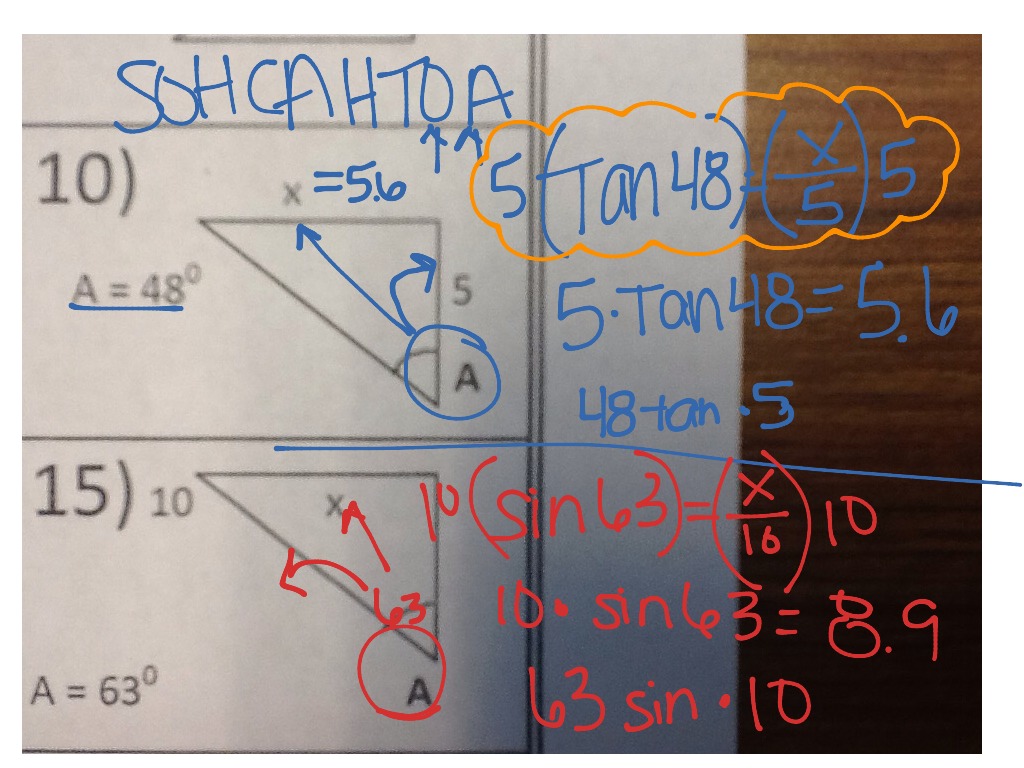 SOHCAHTOA
10)
x = 5.6
5 (Tan 48) = (x/5) 5
A = 48⁰
5
5 · Tan 48 = 5.6
A
48 tan · 5
15) 10
x
10 (sin 63) = (x/10) 10
63
10 · sin 63 = 8.9
A = 63⁰
A
63 sin · 10